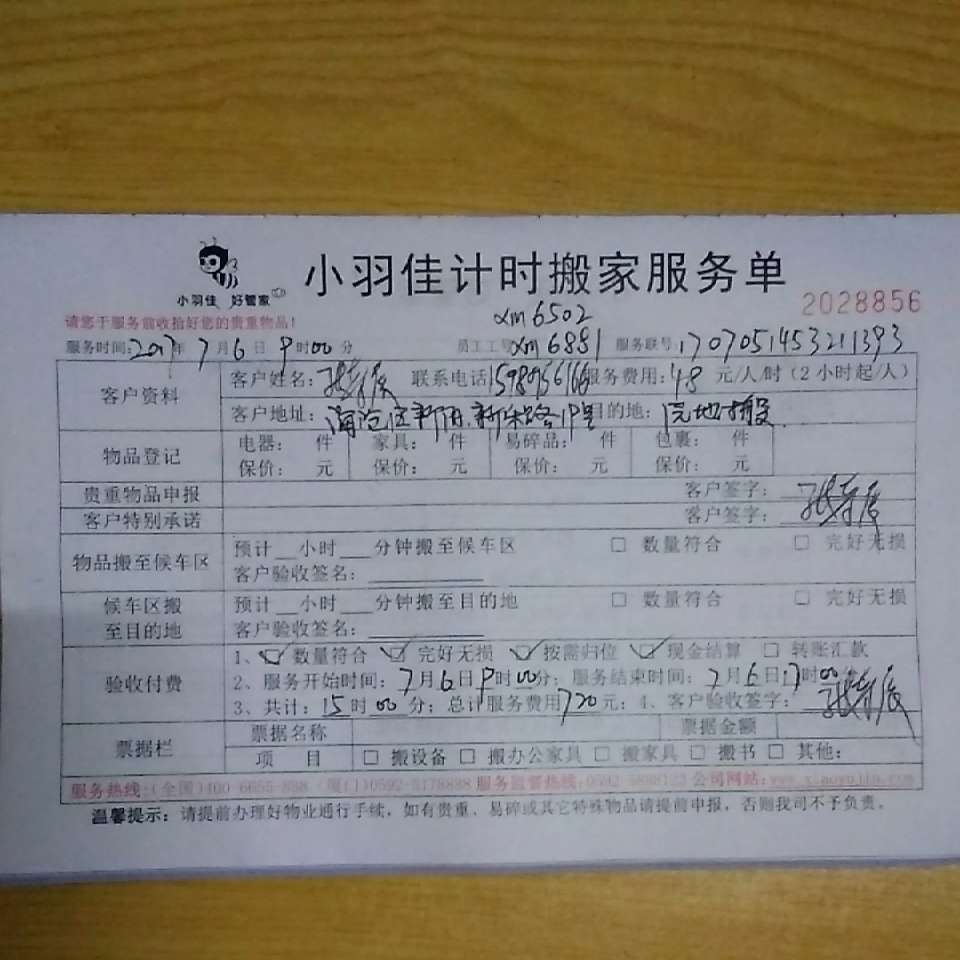 小羽佳 好管家
小羽佳计时搬家服务单
2028856
xm6502
请您于服务前收拾好您的贵重物品!
服务时间:2017年7月6日9时00分 员工工号xm6881 服务联号:1707051453211393
客户资料
客户姓名: 联系电话 服务费用:48元/人/时(2小时起/人)
客户地址:海沧区新阳 目的地:
物品登记
电器: 件 家具: 件 易碎品: 件 包裹: 件
保价: 元 保价: 元 保价: 元 保价: 元
贵重物品申报 客户签字:
客户特别承诺 客户签字:
物品搬至候车区
预计__小时___分钟搬至候车区 □ 数量符合 □ 完好无损
客户验收签名:
候车区搬至目的地
预计__小时___分钟搬至目的地 □ 数量符合 □ 完好无损
客户验收签名:
验收付费
1、☑数量符合 ☑完好无损 ☑按需归位 ☑现金结算 □ 转账汇款
2、服务开始时间:7月6日9时00分;服务结束时间:7月6日17时00分
3、共计:15时00分;总计服务费用720元;4、客户验收签字:
票据栏
票据名称 票据金额
项 目 □ 搬设备 □ 搬办公家具 □ 搬家具 □ 搬书 □ 其他:
服务热线:(全国)400-6655-888 (厦门)0592- 服务监督热线: 公司网站:
温馨提示:请提前办理好物业通行手续,如有贵重、易碎或其它特殊物品请提前申报,否则我司不予负责。